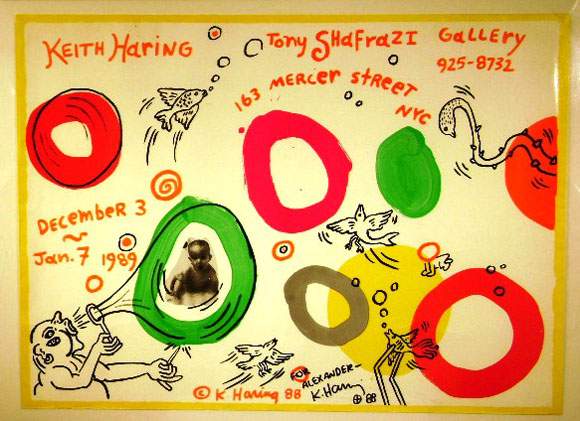 KEITH HARING
TONY SHAFRAZI GALLERY
925-8732
163 MERCER STREET
NYC
DECEMBER 3
~
Jan. 7 1989
© K Haring 88
FOR
ALEXANDER–
K. Haring
⊕ 88